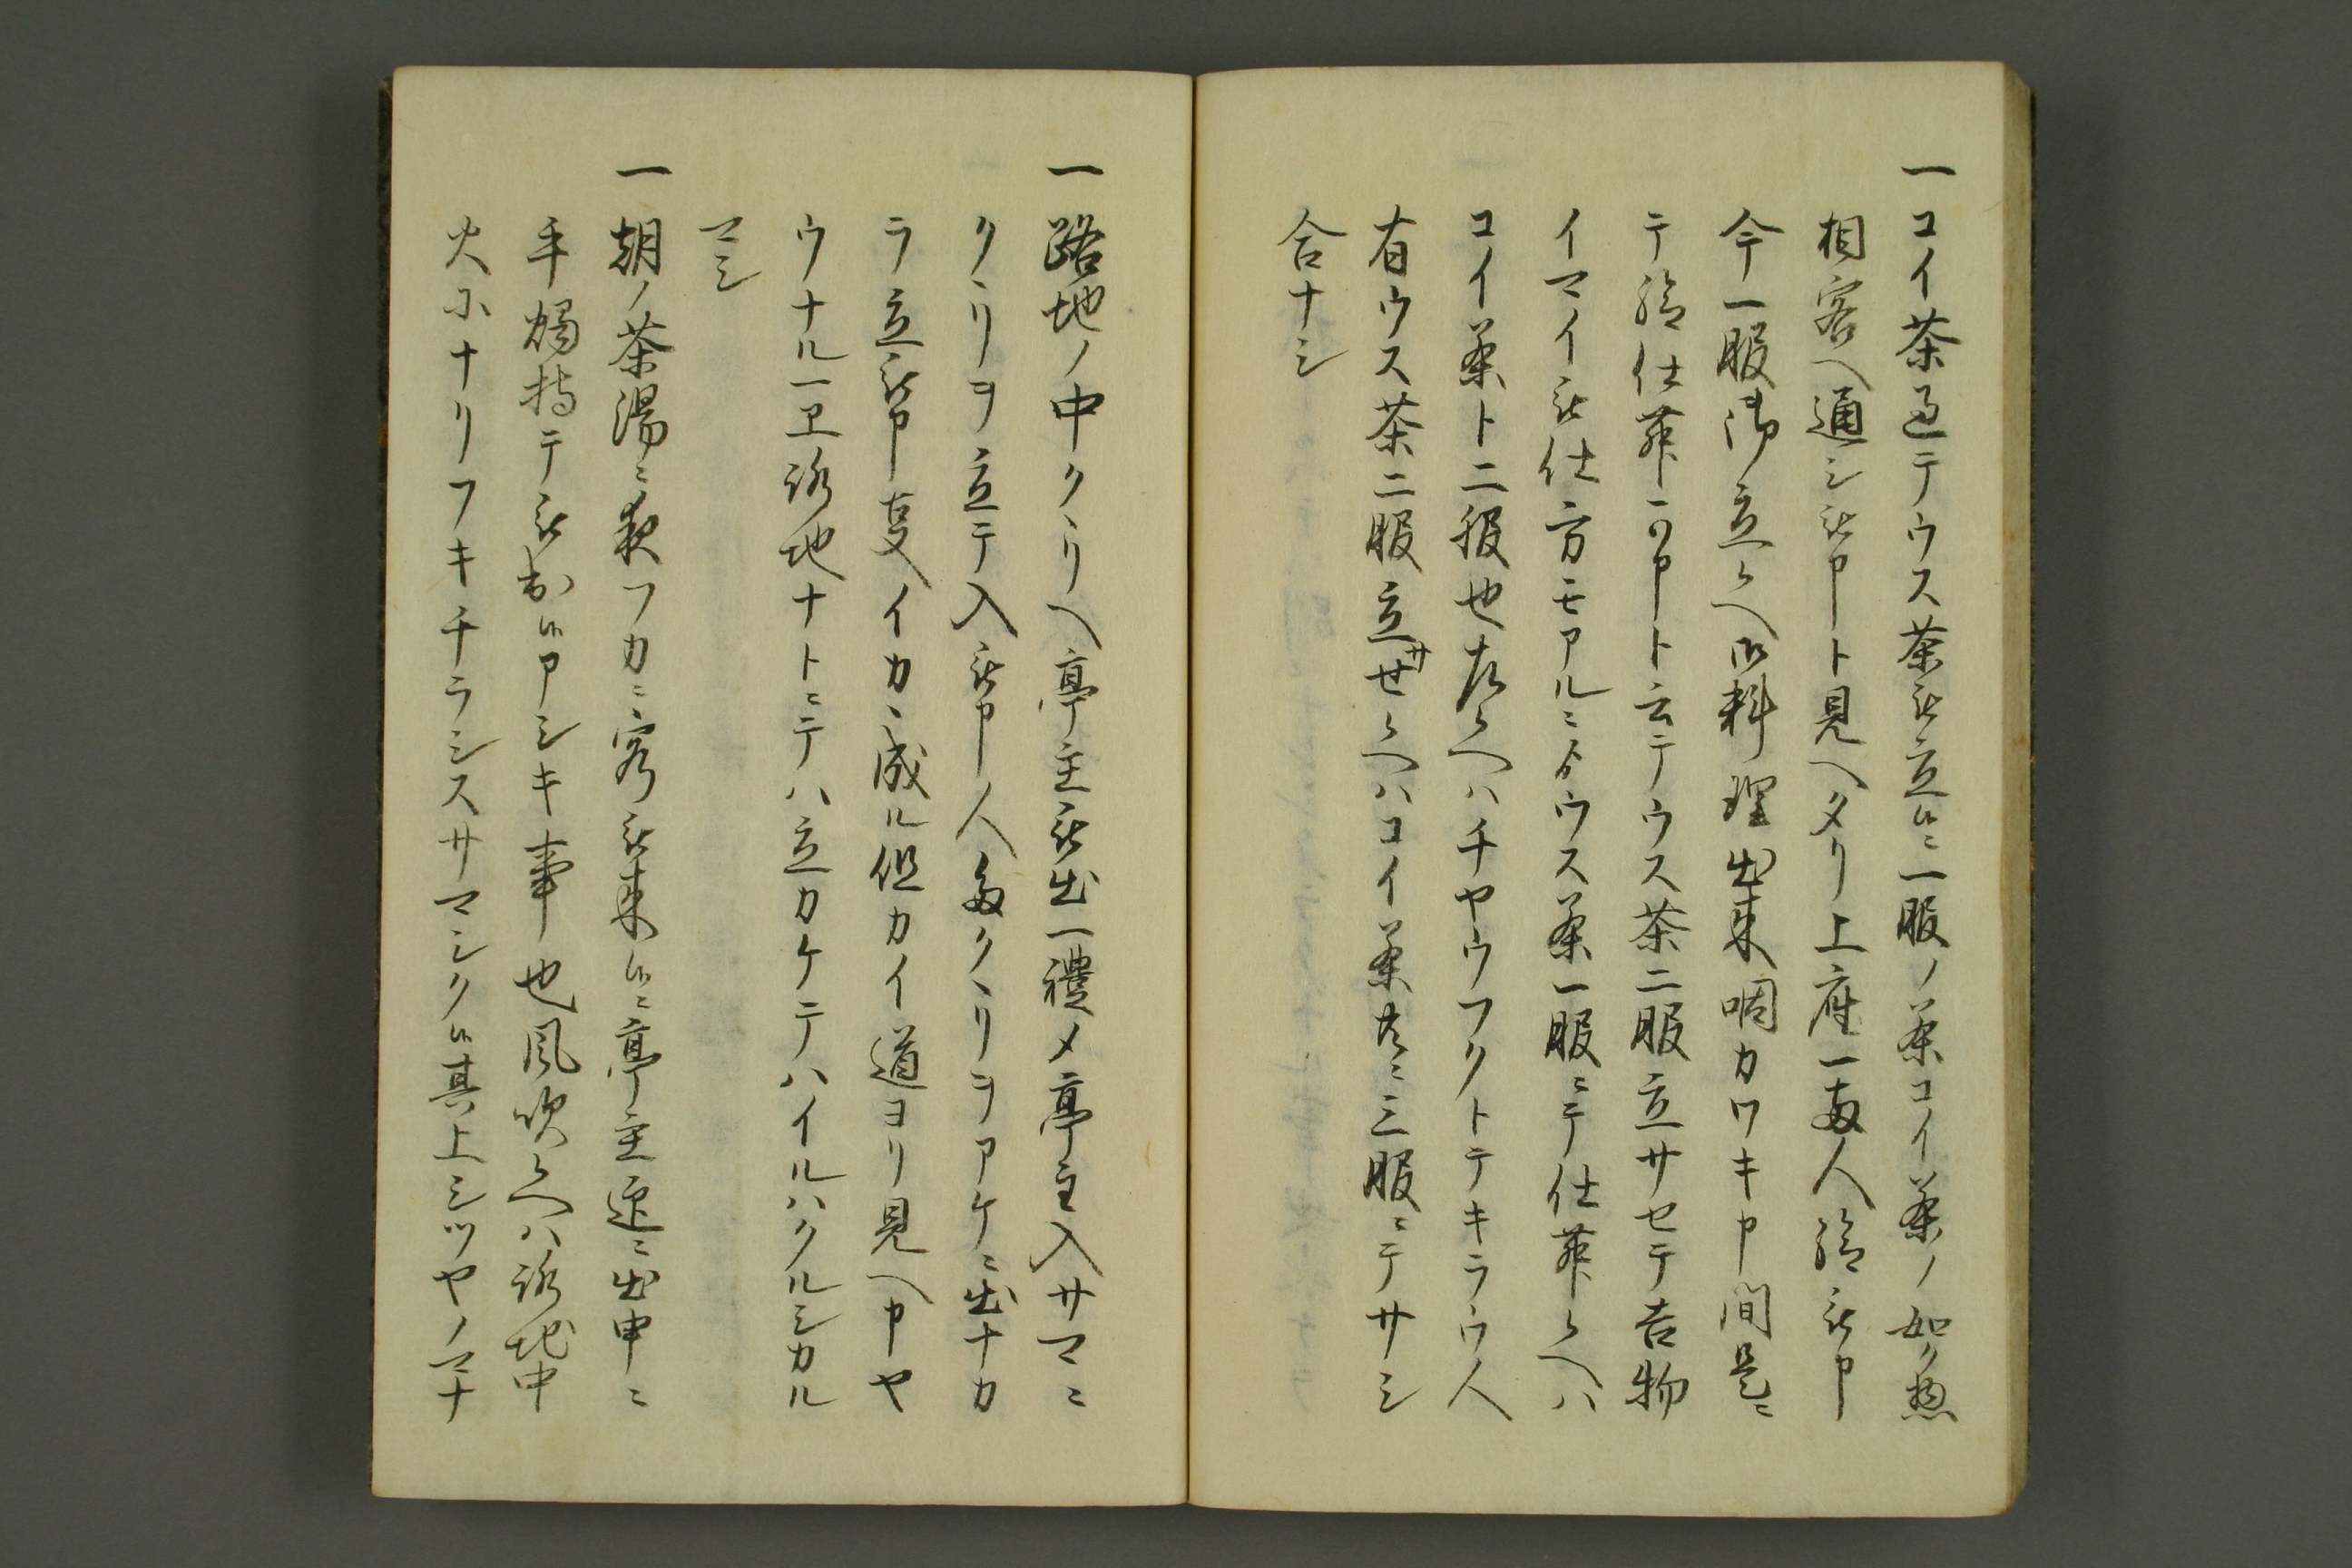 一コイ茶過テウス茶被立候ニ一服ノ茶コイ茶ノ如ク惣
相客ヘ通シ被申ト見ヘタリ上座一両人給被申
今一服御立候ヘ御料理出来咽カワキ申間是ニ
テ給仕舞可申ト云テウス茶二服立サセテ吉物
イマイ被仕方モアルニヨウス茶一服ニテ仕舞候ヘハ
コイ茶ト二服也左候ヘハチヤウフクトテキラウ人
有ウス茶二服立サせ候ヘハコイ茶共ニ三服ニテサシ
合ナシ
一路地ノ中クヽリヘ亭主被出一禮メ亭主入サマニ
クヽリヲ立テ入被申人多クヽリヲアケニ出ナカ
ラ立被申事イカヽ成ル但カイ道ヨリ見ヘ申ヤ
ウナル一重路地ナトニテハ立カケテハイルハクルシカル
マシ
一朝ノ茶湯ニ夜フカニ客被来候ニ亭主迎ニ出申ニ
手燭持テ被出候アシキ事也風吹候ヘハ路地中
火ホナリフキチラシスサマシク候其上シツヤノマナ